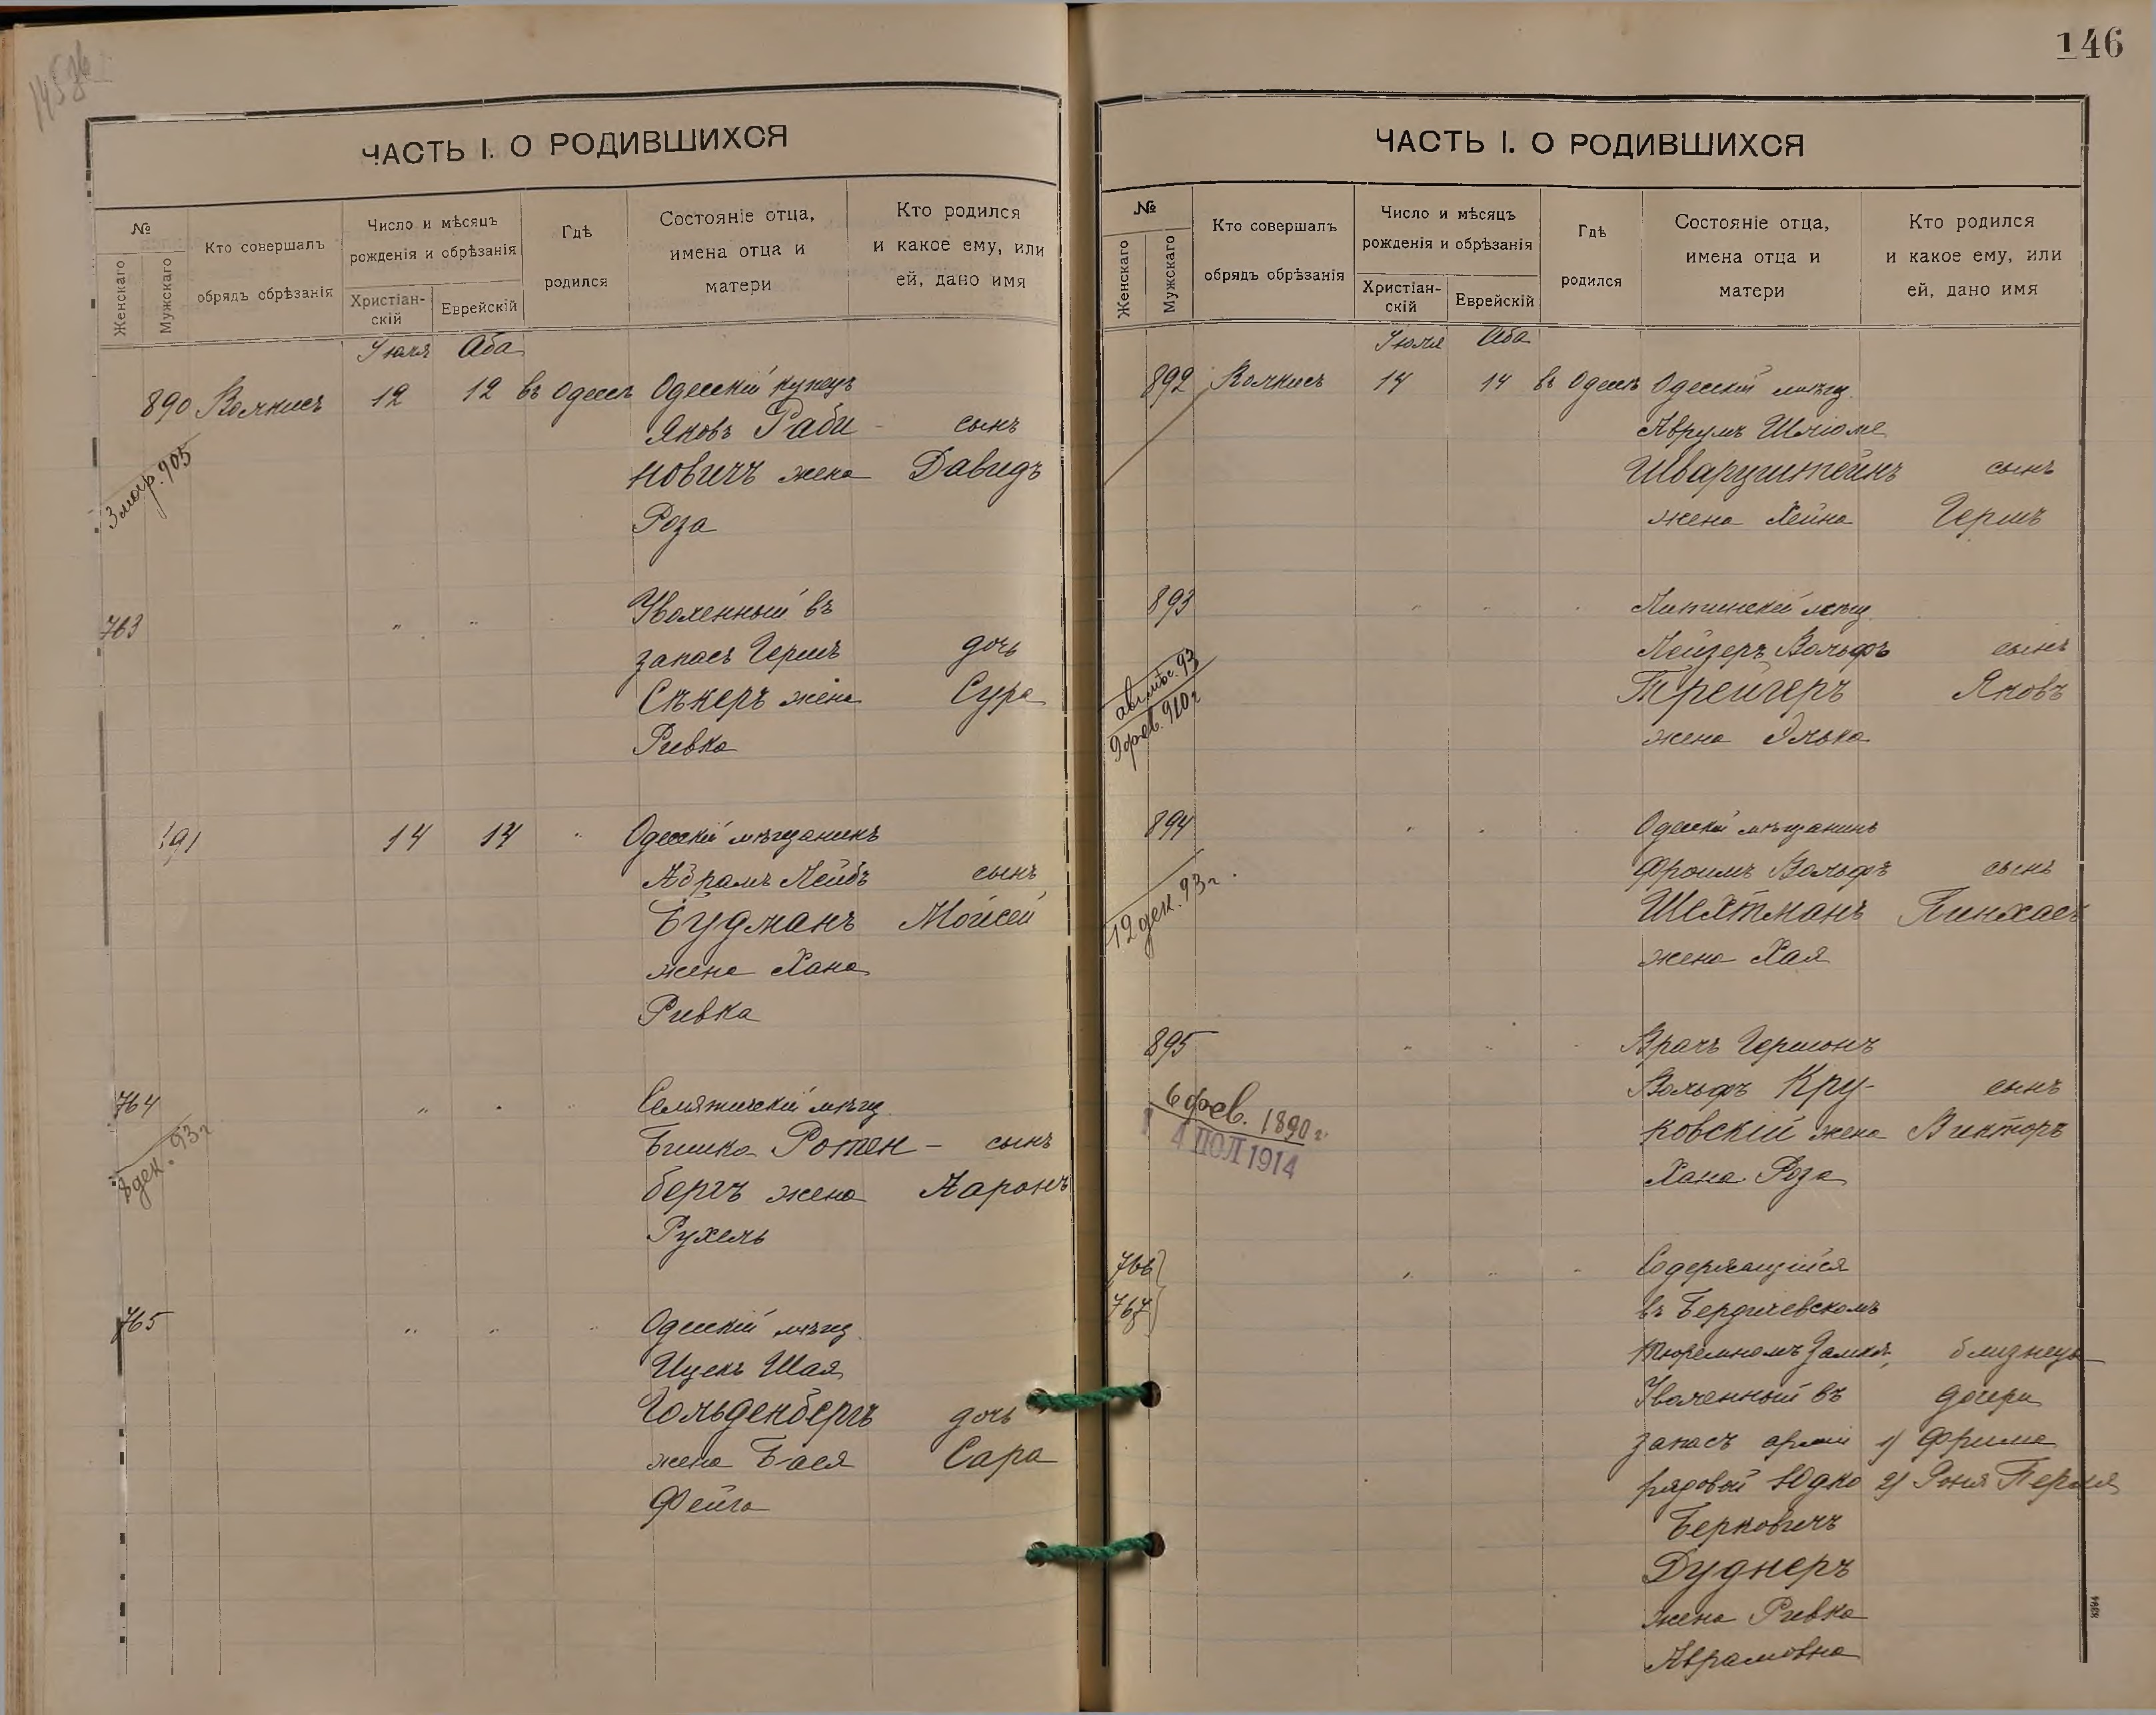 146
ЧАСТЬ I. О РОДИВШИХСЯ
№
Женскаго
Мужскаго
Кто совершалъ
обрядъ обрѣзанія
Число и мѣсяцъ
рожденія и обрѣзанія
Христіан-
скій
Еврейскій
Гдѣ
родился
Состояніе отца,
имена отца и
матери
Кто родился
и какое ему, или
ей, дано имя
Іюля Аба
890 12 12 въ Одессѣ Одесскій купецъ
Яковъ Раби- сынъ
новичъ жена Давидъ
Роза
763 " " Уволенный въ
запасъ Гершъ дочь
Сѣкеръ жена Сура
Ривка
891 14 14 " Одесскій мѣщанинъ
Абрамъ Лейбъ сынъ
Будманъ Мойсей
жена Хана
Ривка
764 " " " мѣщ.
8 дек. 93 г
Бишка Ротен- сынъ
бергъ жена Ааронъ
Рухель
765 " " " Одесскій мѣщ.
Ицекъ Шая
Гольденбергъ дочь
жена Бася Сара
Фейга
ЧАСТЬ I. О РОДИВШИХСЯ
№
Женскаго
Мужскаго
Кто совершалъ
обрядъ обрѣзанія
Число и мѣсяцъ
рожденія и обрѣзанія
Христіан-
скій
Еврейскій
Гдѣ
родился
Состояніе отца,
имена отца и
матери
Кто родился
и какое ему, или
ей, дано имя
Іюля Аба
892 14 14 въ Одессѣ Одесскій мѣщ.
Аврумъ Шліоме
Шварцштейнъ сынъ
жена Хейна Гершъ
893 " " " мѣщ.
Лейзеръ Вольфъ сынъ
9 фев. 910 г
Трейгеръ Яковъ
жена Элька
894 " " " Одесскій мѣщанинъ
Фроимъ Вольфъ сынъ
12 дек. 93 г.
Шехтманъ Пинхасъ
жена Хая
895 " " " Врачъ Гершонъ
Вольфъ Кру- сынъ
6 фев. 1890 г.
4 ІЮЛ 1914
ковскій жена Викторъ
Хана Роза
766
767
" " " Содержащійся
въ Бердичевскомъ
тюремномъ замкѣ, близнецы
Уволенный въ дочери
запасъ арміи 1) Фрима
рядовой Юдко 2) Роня Перля
Берковичъ
Дуднеръ
жена Ривка
Аврамовна